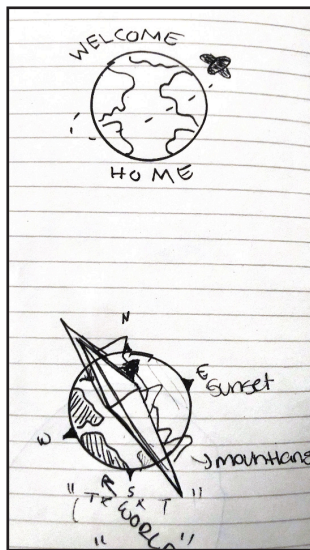 WELCOME
HOME
N
E
Sunset
W
S
mountians
WORLD